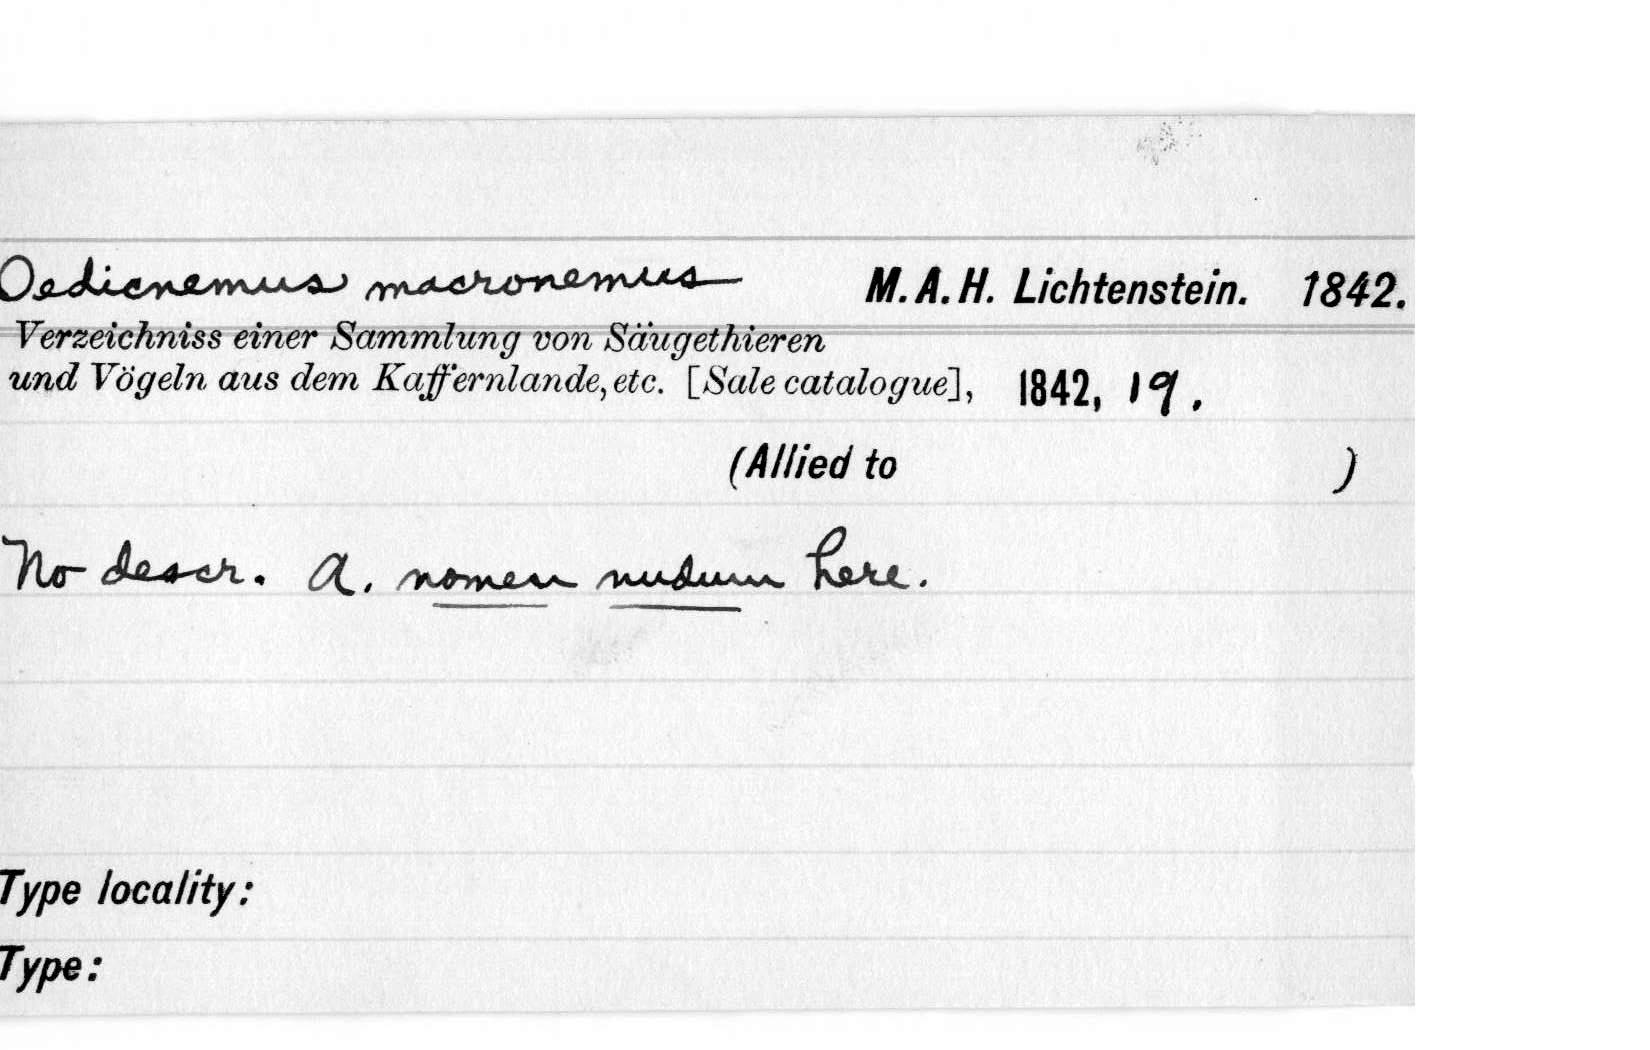 Oedicnemus macronemus M.A.H. Lichtenstein. 1842.
Verzeichniss einer Sammlung von Säugethieren
und Vögeln aus dem Kaffernlande, etc. [Sale catalogue], 1842, 19.
(Allied to )
No descr. A. nomen nudum here.
Type locality:
Type: